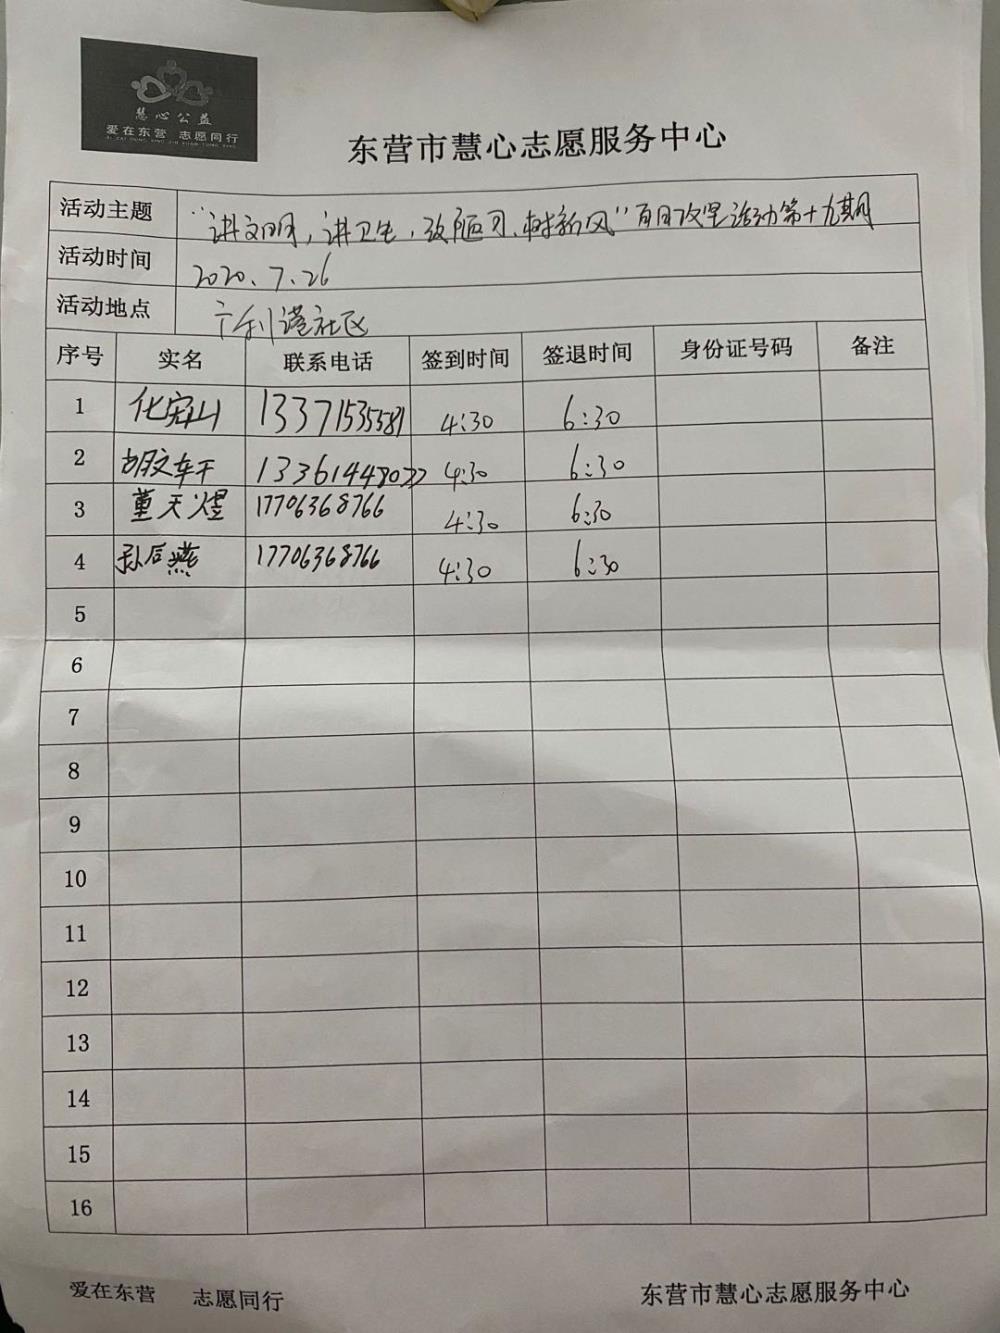 慧心公益
爱在东营 志愿同行
AI ZAI DONG YING ZHI YUAN TONG XING
东营市慧心志愿服务中心
活动主题 "讲文明，讲卫生，改陋习、树新风"百日攻坚活动第十九期
活动时间 2020、7、26
活动地点 利港社区
序号 实名 联系电话 签到时间 签退时间 身份证号码 备注
1 山 13371535581 4:30 6:30
2 胡文 13361448022 4:30 6:30
3 董天煜 17706368766 4:30 6:30
4 孙后燕 17706368766 4:30 6:30
5
6
7
8
9
10
11
12
13
14
15
16
爱在东营 志愿同行 东营市慧心志愿服务中心